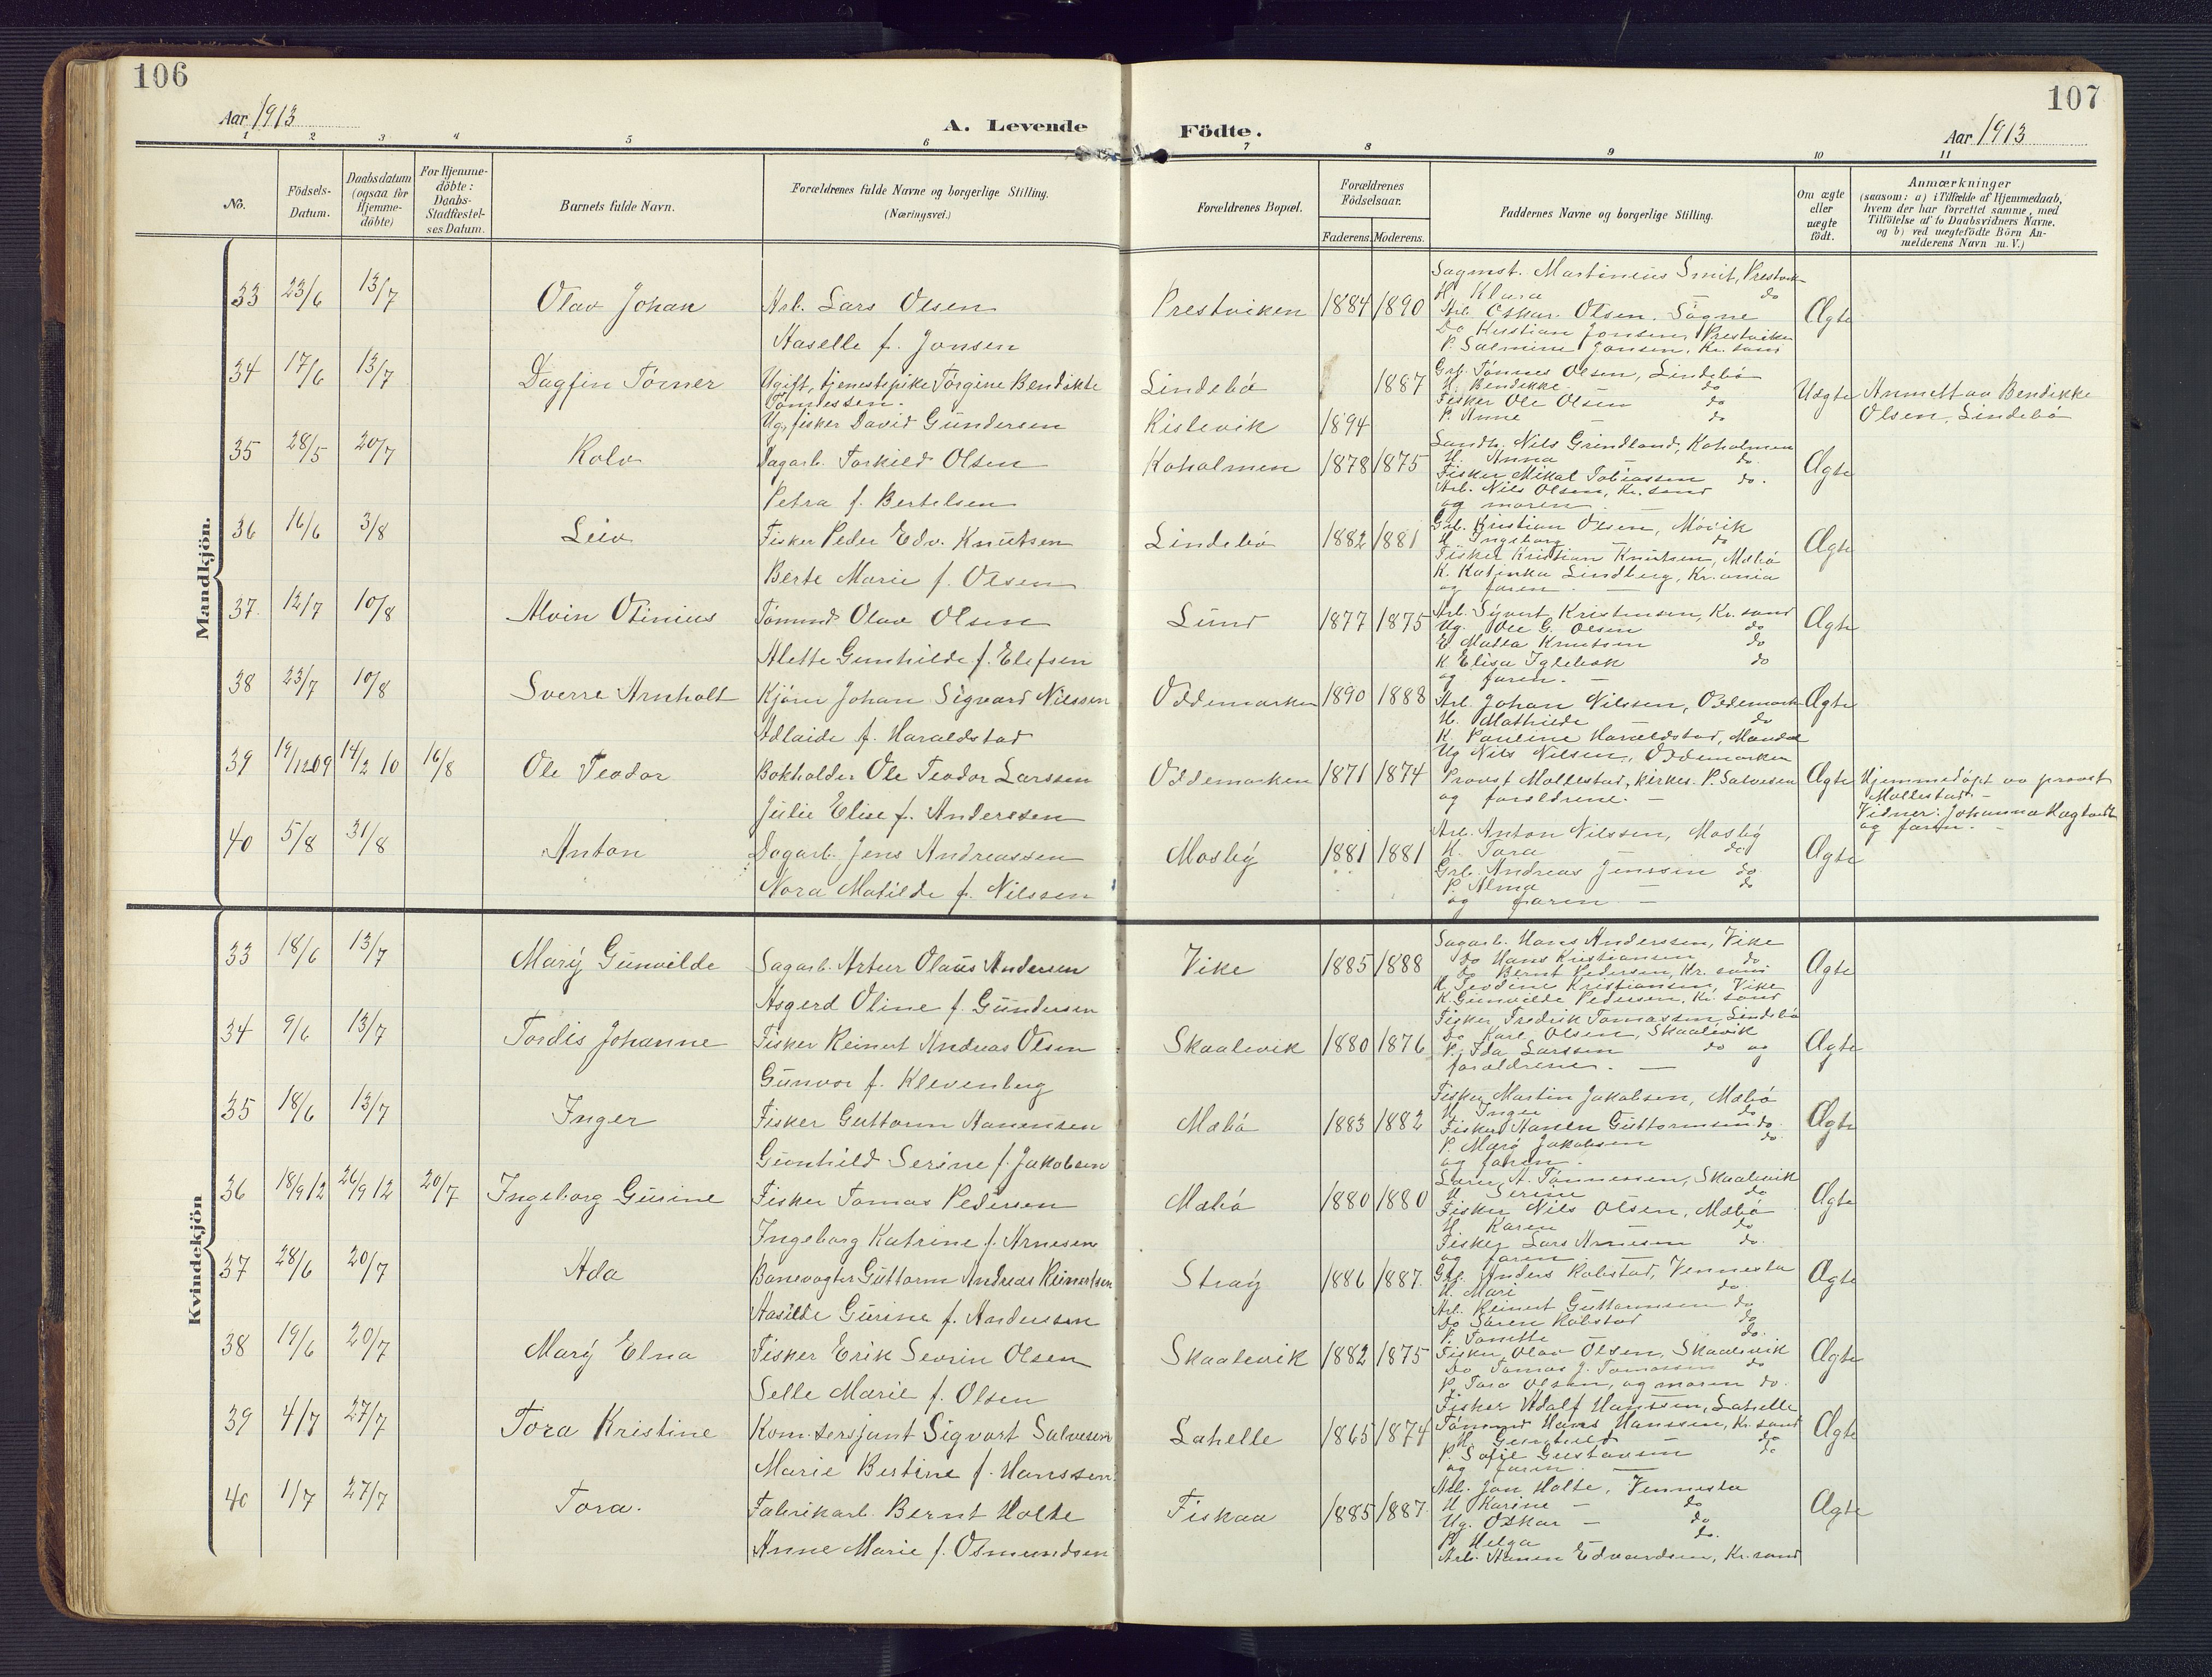 106
107
Aar 1913
A. Levende
Födte.
Aar 1913
1 2 3 4 5 6 7 8 9 10 11
No.
Födsels-Datum.
Daabsdatum (ogsaa for Hjemme-döbte)
For Hjemme-döbte: Daabs-Stadfæstel-ses Datum.
Barnets fulde Navn.
Forældrenes fulde Navne og borgerlige Stilling.
(Næringsvei.)
Forældrenes Bopæl.
Forældrenes Födselsaar.
Faderens. Moderens.
Faddernes Navne og borgerlige Stilling.
Om ægte eller uægte födt.
Anmærkninger
(saasom: a) i Tilfælde af Hjemmedaab,
hvem der har forrettet samme, med
Tilföielse af to Daabsvidners Navne,
og b) ved uægtefödte Börn An-
melderens Navn m. V.)
Mandkjön.
33 23/6 13/7 Olav Johan Arb. Lars Olsen Prestviken 1884 1890 Ægte
Haselle f. Jonsen
Sagmst. Martinius Smit, Prestvik
H. Klara — do
Arb. Oskar Olsen. Sögne
Do Kristian Jonsen, Prestviken
P. Salmine Jonsen, Kr. sand
34 17/6 13/7 Dagfin Törner Ugift, tjenestepike Torgine Bendikte Lindebö 1887 Uægte Anmelt av Bendikke
Tönnessen. Olsen, Lindebö
Ug. fisker David Gundersen Kislevik 1894
Grb. Tönnes Olsen, Lindebö
H. Bendikke — do
Fisker Ole Olsen do
P. Anne — do
35 28/5 20/7 Rolv Dagarb. Torkild Olsen Koholmen 1878 1875 Ægte
Petra f. Bertelsen
Landh. Nils Grindland, Koholmen
H. Anna — do.
Fisker Mikal Tobiassen do.
Arb. Nils Olsen, Kr. sand
og moren. —
36 16/6 3/8 Leiv Fisker Peder Edv. Knutsen Lindebö 1882 1881 Ægte
Berte Marie f. Olsen
Grb. Kristian Olsen, Mövik
H. Ingeborg — do
Fisker Kristian Knutsen, Mæbö
K. Katinka Lindberg, Kr.ania
og faren. —
37. 12/7 10/8 Alvin Otinius Tömmd Olav Olsen Lund 1877 1875 Ægte
Alette Gunhilde f. Elefsen
Arb. Syvert Kristensen, Kr. sand
Ug. Ole G. Olsen do
E. Malla Knutsen do
K Elisa Iglebæk do
og faren. —
38 23/7 10/8 Sverre Arnholt Kjörer Johan Sigvard Nilssen Oddemarken 1890 1888 Ægte
Adlaide f. Haraldstad
Arb. Johan Nilssen, Oddemark
H. Mathilde do
K. Pauline Haraldstad, Mandal
Ug Nils Nilsen, Oddemarken
39 19/12 09 14/2 10 16/8 Ole Teodor Bokholder Ole Teodor Larssen Oddemarken 1871 1874 Ægte Hjemmedöpt av provst
Julie Elise f. Anderssen Mollestad.
Provst Mollestad, kirkes. P. Salvesen
og forældrene. —
Vidner: Johanna
og faren. —
40 5/8 31/8 Anton Dagarb. Jens Andreassen Mosby 1881 1881 Ægte
Nora Matilde f. Nilssen
Arb. Anton Nilssen, Mosby
H. Tora — do
Grb. Andreas Jenssen do.
P. Alma — do
og faren —
Kvindekjön
33 18/6 13/7 Mary Gunvilde Sagarb. Artur Olaus Andersen Vike 1885 1888 Ægte
Asgerd Oline f. Gundersen
Sagarb. Hans Anderssen, Vike
do Hans Kristiansen do
do Bernt Pedersen, Kr. sand
H. Teodine Kristiansen, Vike
K. Gunvilde Pedersen, Kr. sand
34 9/6 13/7 Tordis Johanne Fisker Reinert Andreas Olsen Skaalevik 1880 1876 Ægte
Gunvor f. Klevenberg
Fisker Fredrik Tomassen, Lindebö
Do Karl Olsen, Skaalevik
P. Ida Larssen do og
forældrene. —
35 18/6 13/7 Inger Fisker Guttorm Aanensen Mæbö 1883 1882 Ægte
Gunhild Serine f. Jakobsen
Fisker Martin Jakobsen, Mæbö
H. Inger — do
Fisker Aanen Guttormsen do.
P. Mary Jakobsen do.
og faren.
36 18/9 12 26/9 12 20/7 Ingeborg Gusine Fisker Tomas Pedersen Mæbö 1880 1880 Ægte
Ingeborg Katrine f. Arnesen
A. Tönnessen, Skaalevik
H. Serine do
Fisker Nils Olsen, Mæbö
H. Karen — do
Fisker Lars Arnesen do.
og faren —
37 28/6 20/7 Ada Banevogter Guttorm Andreas Reinertsen Stray 1886 1887. Ægte
Aasilde Gurine f. Anderssen
Grb. Anders Robstad, Vennesla
H. Mari — do.
Arb. Reinert Guttormsen do
Do Søren Robstad do
P. Tomitte — do.
38 19/6 20/7 Mary Elna Fisker Erik Sevrin Olsen Skaalevik 1882 1875 Ægte
Selle Marie f. Olsen
Fisker Olav Olsen, Skaalevik
Do Tomas J. Tomassen do
P. Tora Olsen, og moren do.
39 4/7 27/7 Tora Kristine Kom. sersjant Sigvart Salvesen Lahelle 1865 1874 Ægte
Marie Bertine f. Hanssen
Fisker Adolf Hanssen, Lahelle
Tömmd Hans Hanssen, Kr. sand
H. Gunhild — do
P. Sofie Gustavsen do
og faren. —
40 1/7 27/7 Tora. Fabrikarb. Bernt Holte Fiskaa 1885 1887. Ægte
Anne Marie f. Osmundsen
Arb. Jon Holte, Vennesla
H Karine — do
Ug. Oskar — do
P. Helga do.
Arb. Aanen Edvardsen, Kr. sand